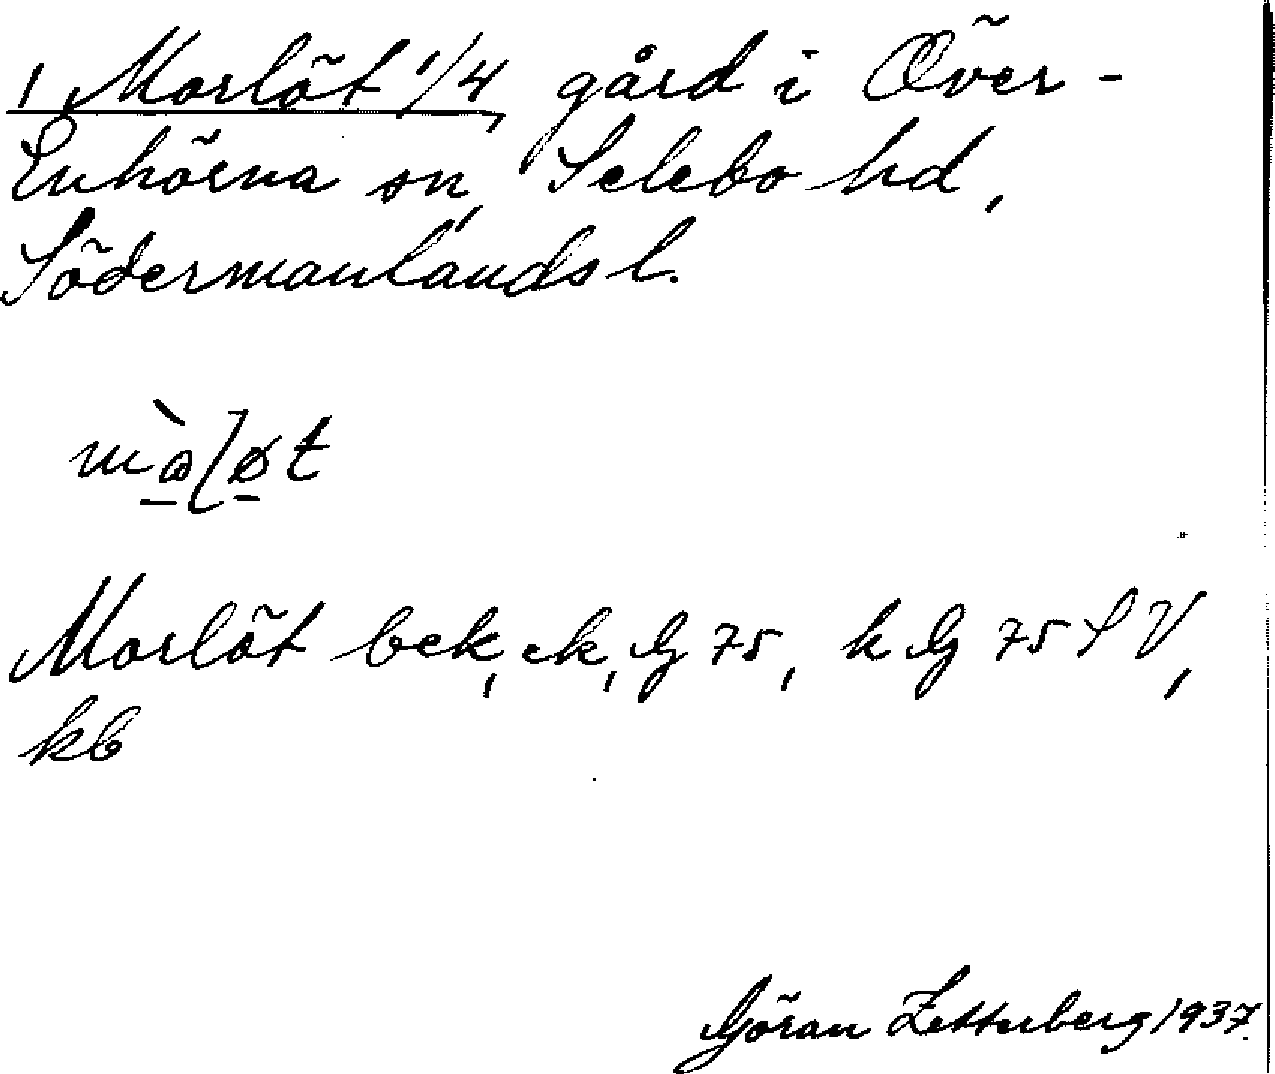 1 Morlöt 1/4, gård i Över-
Enhörna sn, Selebo hd,
Södermanlands l.
Morlöt bek, ek, G 75, h G 75 SV,
kb
Göran Zetterberg 1937.